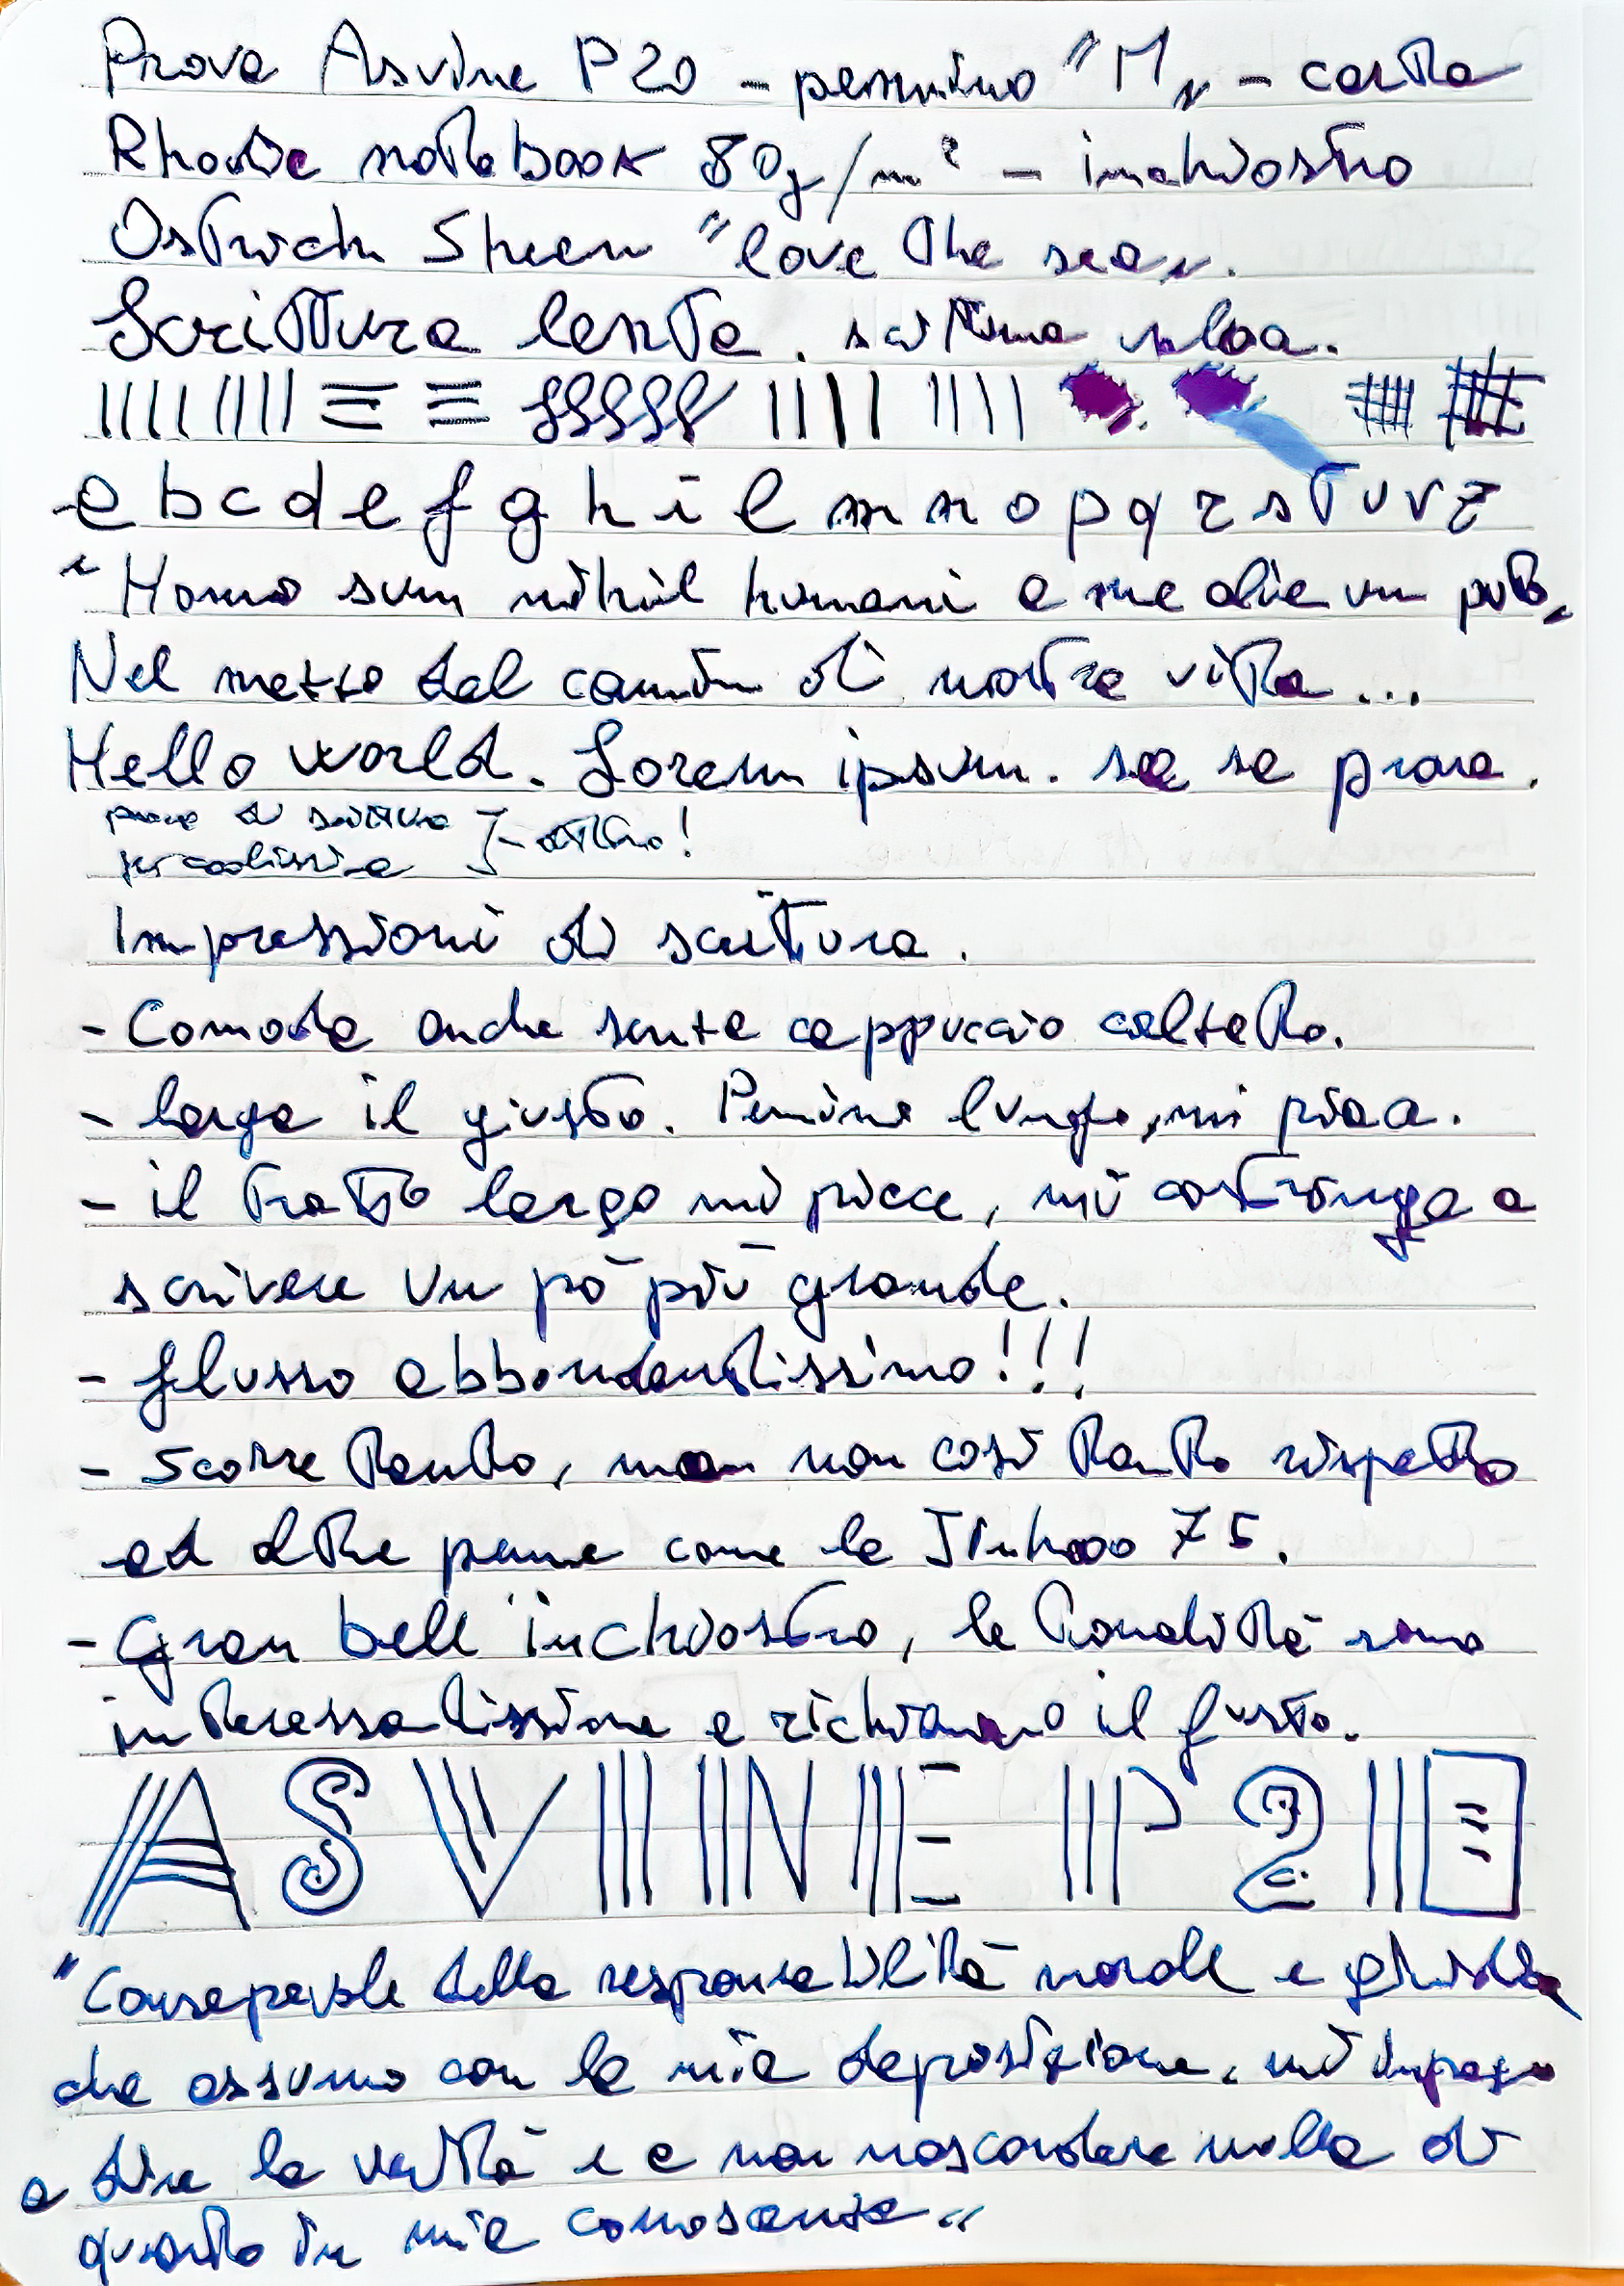 Prova Asvine P20 - pennino "M" - carta
Rhodia notebook 80g/m² - inchiostro
Ostrich Sheen "love the sea".
Scrittura lenta. scrittura veloce.
a b c d e f g h i l m n o p q r s t u v z
"Homo sum nihil humani a me alienum puto"
Nel mezzo del cammin di nostra vita...
Hello world. Lorem ipsum. sa sa prova.
prova di scrittura
piccolissima } - ottimo!
Impressioni di scrittura.
- Comoda anche senza cappuccio calzato.
- larga il giusto. Pennino lungo, mi piace.
- il tratto largo mi piace, mi costringe a
scrivere un pò più grande.
- flusso abbondantissimo!!!
- Scorre tanto, ma non così tanto rispetto
ad altre penne come la Jinhao 75.
- Gran bell'inchiostro, le tonalità sono
interessantissime e richiamano il fusto.
ASVINE P20
"Consapevole della responsabilità morale e giuridica
che assumo con la mia deposizione, mi impegno
a dire la verità e a non nascondere nulla di
quanto in mia conoscenza"